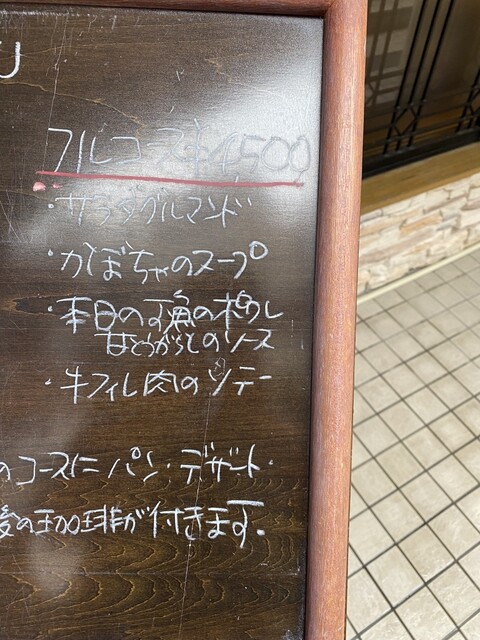 リ
フルコース ¥4,500
・サラダグルマンド
・かぼちゃのスープ
・本日の魚のポワレ
とのソース
・牛フィレ肉のソテー
のコースに パン・デザート・
後の珈琲が付きます。